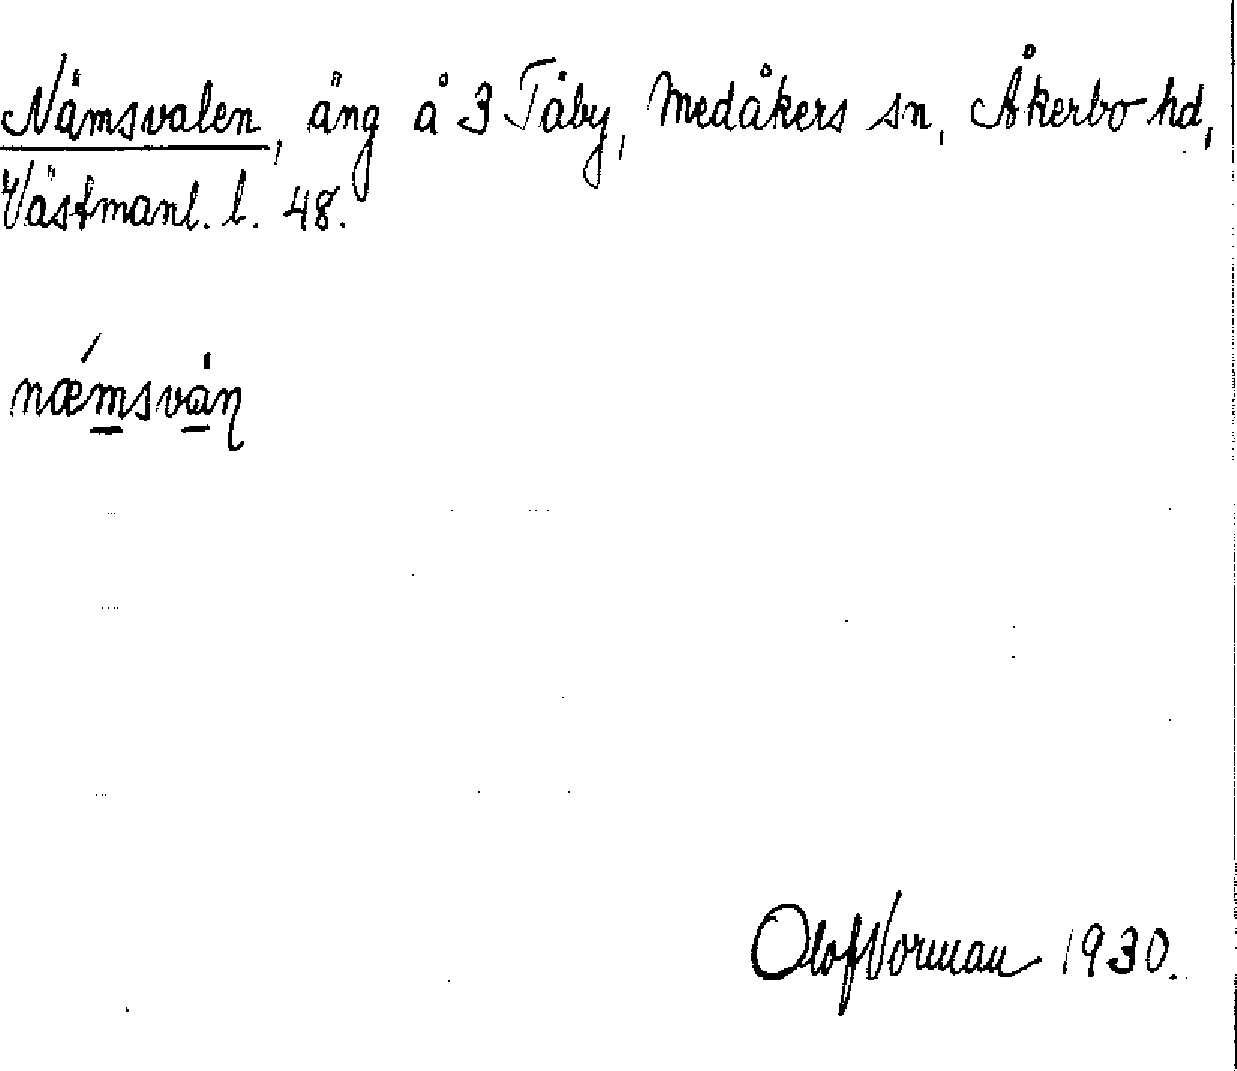 Nämsvalen, äng å 3 Täby, Medåkers sn, Åkerbo hd,
Västmanl. l. 48.
næ´msvàn
Olof Vorman 1930.